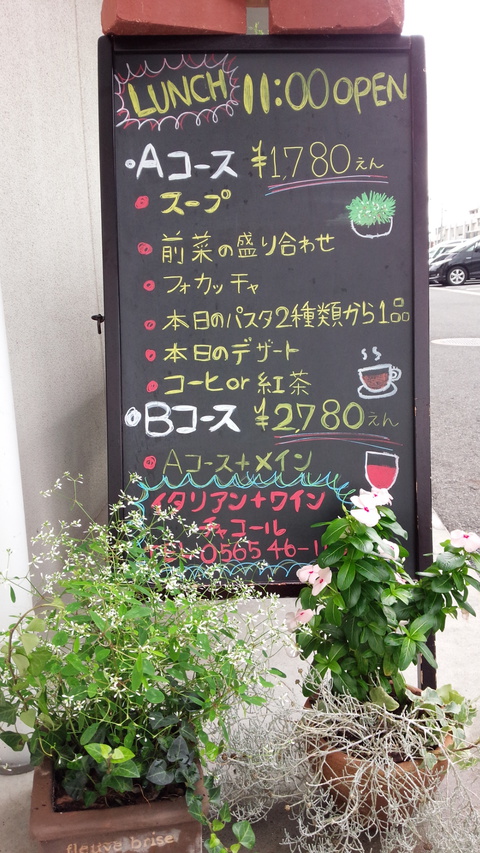 LUNCH 11:00 OPEN
・Aコース ¥1,780えん
スープ
前菜の盛り合わせ
フォカッチャ
本日のパスタ2種類から1品
本日のデザート
コーヒor紅茶
・Bコース ¥2,780えん
Aコース+メイン
イタリアン+ワイン
チャコール
TEL 0565 46-1
fletive brise